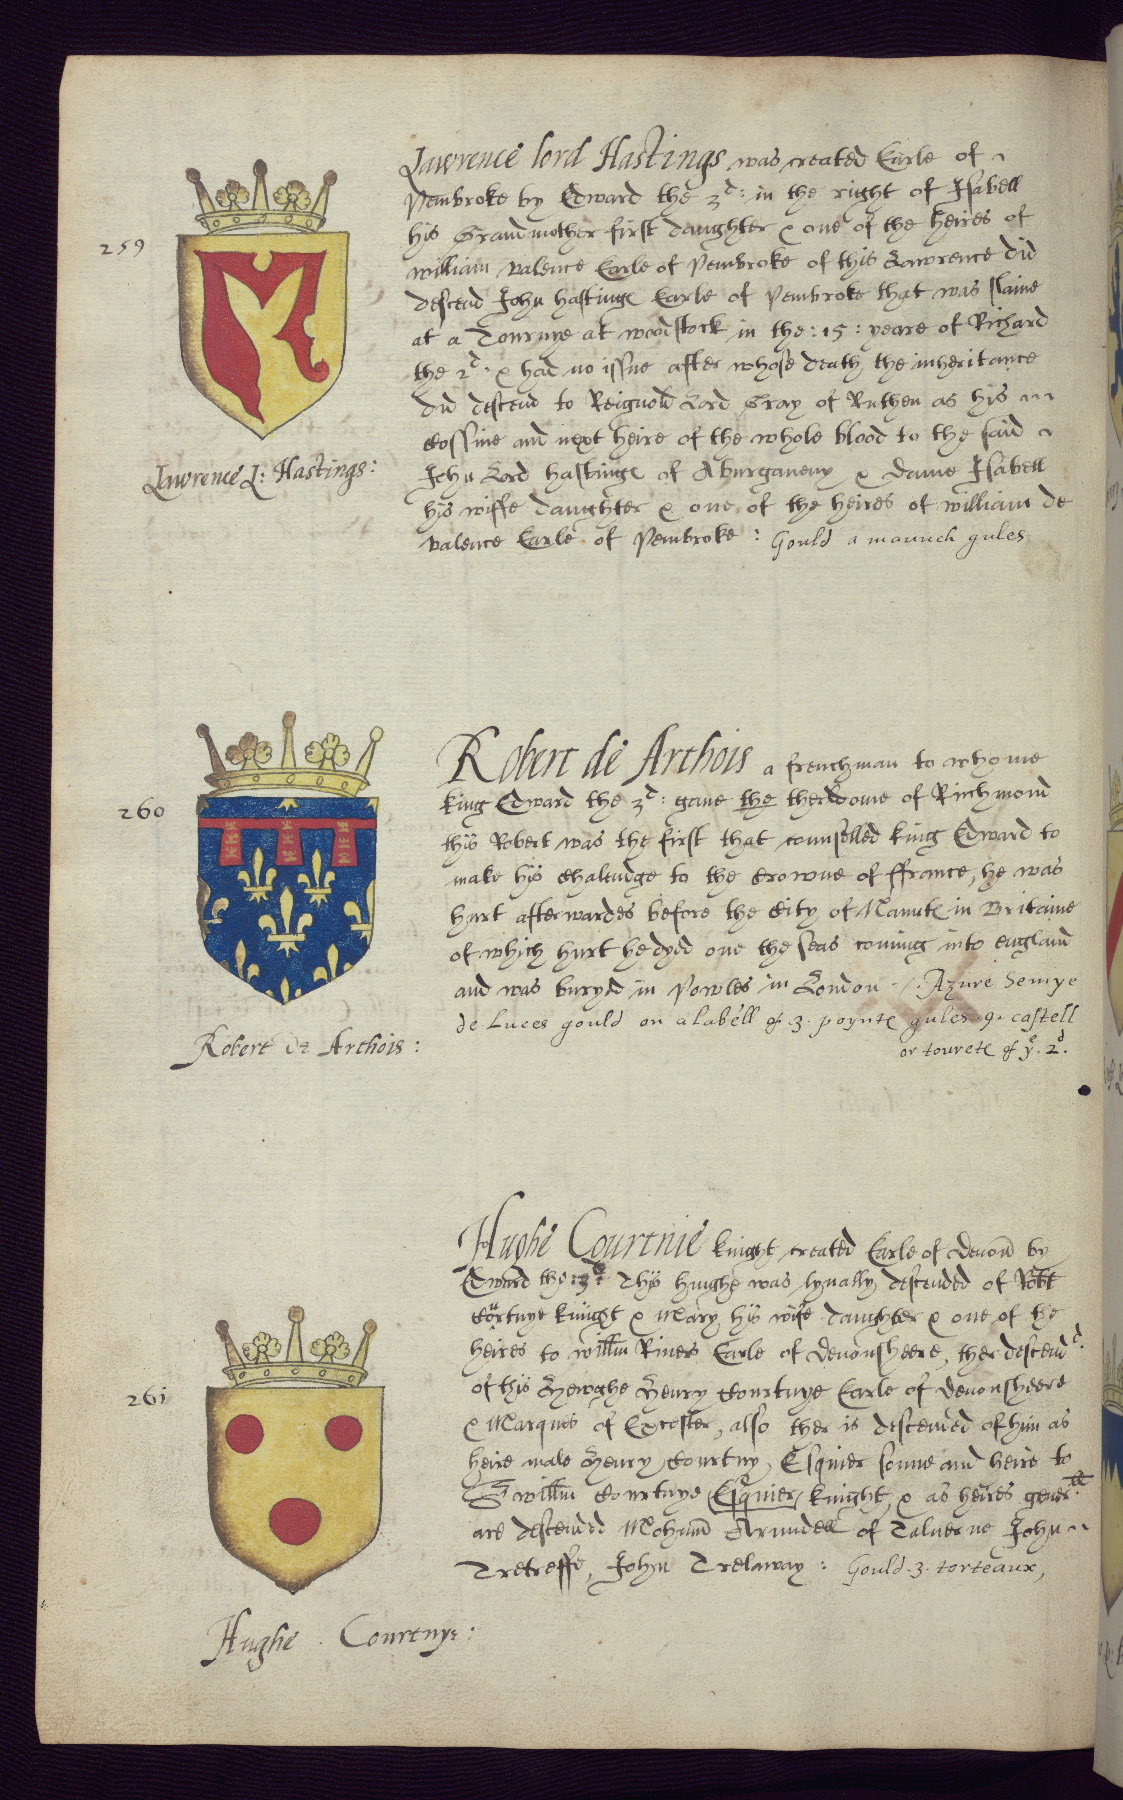 259
Lawrence lord Hastings was created Earle of
Pembroke by Edward the 3d: in the right of Isabell
his Grandmother first daughter & one of the heires of
william valence Earle of Pembroke of this Lawrence did
descend John hastinges Earle of Pembroke that was slaine
at a Tournye at woodstock in the :15: yeare of Richard
the 2d: & had no issue after whose death the inheritance
did descend to Reignold Lord Gray of Ruthen as his
cossine and next heire of the whole blood to the said
John Lord hastinges of Aburganeny & dame Isabell
his wiffe daughter & one of the heires of william de
valence Earle of Pembroke : Gould a maunch gules
Lawrence L: Hastings:
260
Robert de Arthois a frenchman to whome
king Edward the 3d: gave the therldome of Richmond
this Robert was the first that counselled king Edward to
make his chalendge to the crowne of ffrance, he was
hurt afterwardes before the City of Nanntes in Britaine
of which hurt he dyed one the seas coming into england
and was buryed in Powles in London : Azure Semye
de Luces gould on a labell of .3. poyntes gules .9. castells
or touretes of ye. 2d.
Robert de Arthois :
261
Hughe Courtnie knight created Earle of Devon by
Edward the 3d Thys hughe was lynally descended of Robt
Cortnye knight & Mary his wife daughter & one of the
heires to willm Rivers Earle of devonsheere, ther descend
of this Hewghe Henry Courtnye Earle of devonsheere
& Marques of Excester, also ther is descended of him as
heire male Henry Courtny, Esquier sonne and heire to
Sr willm Courtnye Esquier knight, & as heires generall
are descended Arundell of Talverne John
Tretreffe, John Trelaway : Gould .3. torteaux,
Hughe Courtnye: